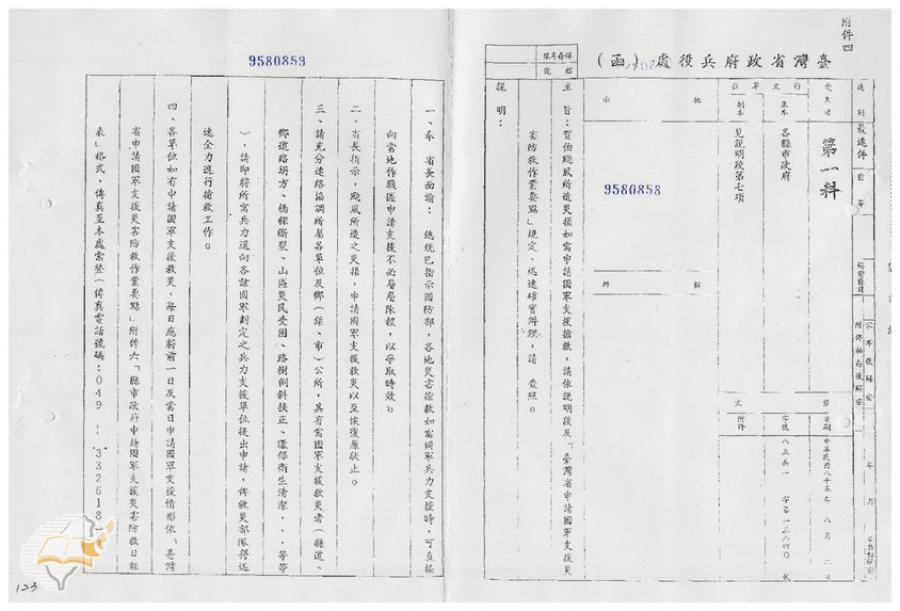 附件四
臺灣省政府兵役處(函)
保存年限
檔號
速別
最速件
密等
解密條件
公布後解密
附件抽存後解密
年 月 日自動解密
受文者
第一科
行文單位
正本
各縣市政府
副本
見說明段第七項
發文
日期
中華民國八十五年 八月 二
字號
八五兵一 字第一三八四〇 號
附件
批示
擬辦
9580858
主旨:賀伯颱風所造災損如需申請國軍支援搶救,請依說明段及「臺灣省申請國軍支援災
害防救作業要點」規定,迅速確實辦理,請 查照。
說明:
一、奉 省長面諭: 總統已指示國防部,各地災害搶救如需國軍兵力支援時,可直接
向當地作戰區申請支援不必層層陳報,以爭取時效。
二、省長指示,颱風所造之災損,申請國軍支援救災以至恢復原狀止。
9580859
三、請充分連絡協調所屬各單位及鄉(鎮、市)公所,其有需國軍支援救災者(縣道、
鄉道路坍方、橋樑斷裂、山區災民受困、路樹傾斜扶正、環保衛生清潔...等等
),請即將所需兵力逕向各該國軍劃定之兵力支援單位提出申請,俾救災部隊得迅
速全力進行搶救工作。
四、各單位如有申請國軍支援救災,每日應將前一日及當日申請國軍支援情形依「臺灣
省申請國軍支援災害防救作業要點」附件六「縣市政府申請國軍支援災害防救日報
表」格式,傳真至本處彙整(傳真電話號碼:049-332618)
123